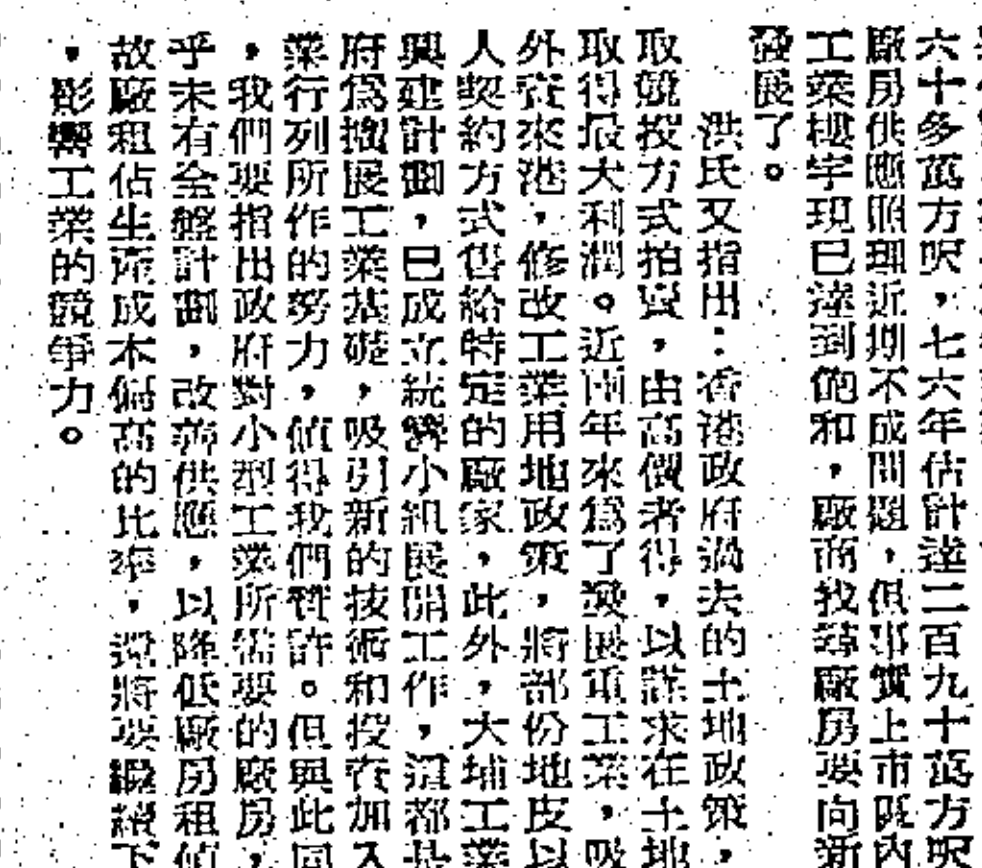 六十多萬方呎,七六年估計達二百九十萬方呎
廠房供應照理近期不成問題,但事實上市區內
工業樓宇現已達到飽和,廠商找尋廠房要向新
發展了。
洪氏又指出:香港政府過去的土地政策,
取競投方式拍賣,由高價者得,以謀求在土地
取得最大利潤。近兩年來爲了發展重工業,吸
外資來港,修改工業用地政策,將部份地皮以
人契約方式售給特定的廠家,此外,大埔工業
興建計劃,已成立統籌小組展開工作,這都是
府爲擴展工業基礎,吸引新的技術和投資加入
業行列所作的努力,値得我們贊許。但與此同
,我們要指出政府對小型工業所需要的廠房,
乎未有全盤計劃,改善供應,以降低廠房租値
故廠租佔生產成本偏高的比率,還將要繼續下
,影響工業的競爭力。